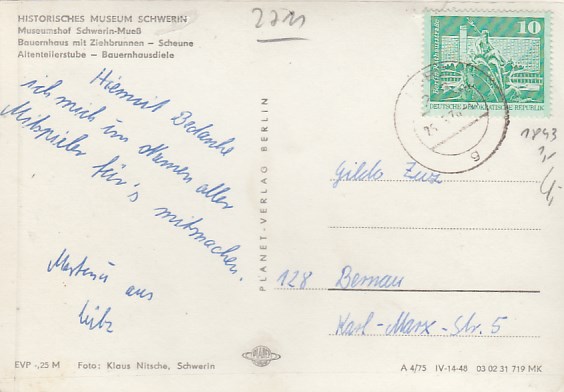 HISTORISCHES MUSEUM SCHWERIN
Museumshof Schwerin-Mueß
Bauernhaus mit Ziehbrunnen – Scheune
Altenteilerstube – Bauernhausdiele
2211
10
DEUTSCHE DEMOKRATISCHE REPUBLIK
Hiermit Bedanke
ich mich im Namen aller
Mitspieler für's mitmachen.
aus
Lübz
PLANET-VERLAG BERLIN
1843
Gilda
128 Bernau
Karl-Marx-Str. 5
EVP -,25 M Foto: Klaus Nitsche, Schwerin
A 4/75 IV-14-48 03 02 31 719 MK